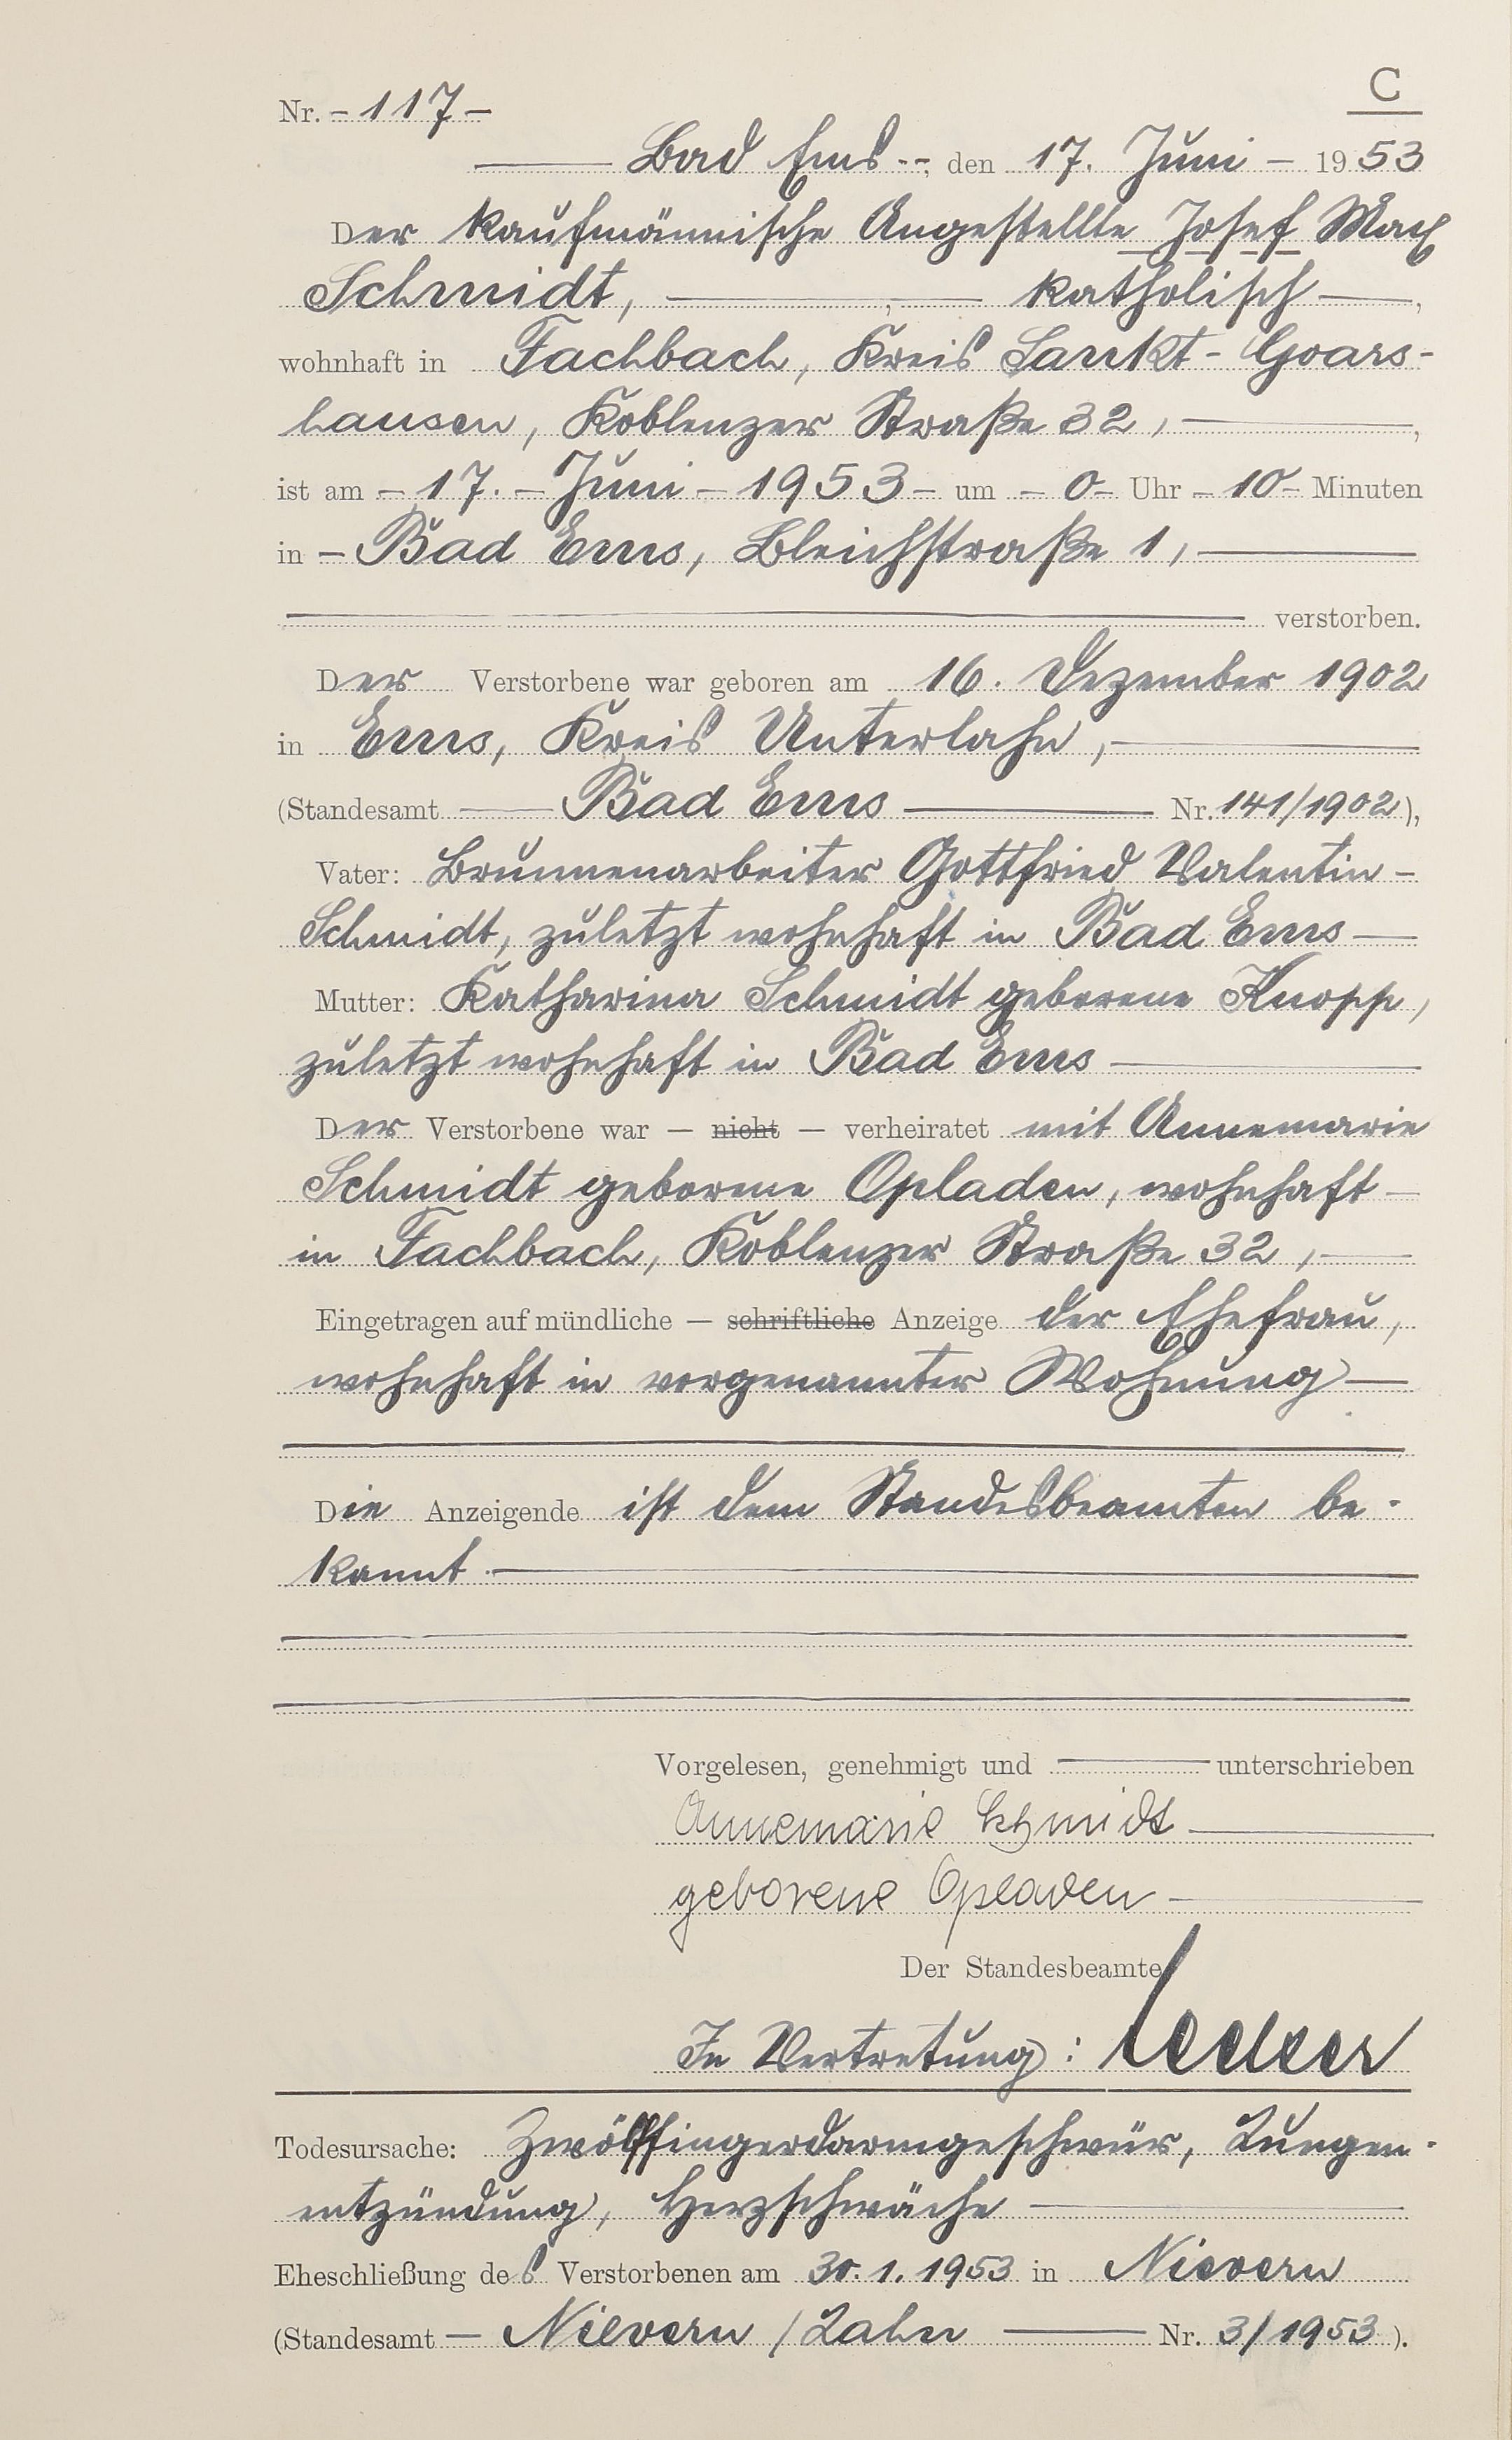 C
Nr. - 117 -
Bad Ems --, den 17. Juni - 1953
Der kaufmännische Angestellte Josef Max
Schmidt, katholisch,
wohnhaft in Fachbach, Kreis Sankt-Goars-
hausen, Koblenzer Straße 32,
ist am - 17. - Juni - 1953 - um - 0 - Uhr - 10 - Minuten
in - Bad Ems, Bleichstraße 1,
verstorben.
Der Verstorbene war geboren am 16. Dezember 1902
in Ems, Kreis Unterlahn,
(Standesamt Bad Ems Nr. 141/1902),
Vater: Brunnenarbeiter Gottfried Valentin -
Schmidt, zuletzt wohnhaft in Bad Ems
Mutter: Katharina Schmidt geborene Knopp,
zuletzt wohnhaft in Bad Ems
Der Verstorbene war — nicht — verheiratet mit Annemarie
Schmidt geborene Opladen, wohnhaft
in Fachbach, Koblenzer Straße 32,
Eingetragen auf mündliche — schriftliche Anzeige der Ehefrau,
wohnhaft in vorgenannter Wohnung
Die Anzeigende ist dem Standesbeamten be-
kannt.
Vorgelesen, genehmigt und unterschrieben
Annemarie Schmidt
geborene Opladen
Der Standesbeamte
In Vertretung:
Todesursache: Zwölffingerdarmgeschwür, Lungen-
entzündung, Herzschwäche
Eheschließung des Verstorbenen am 30.1.1953 in Nievern
(Standesamt - Nievern / Lahn Nr. 3/1953).